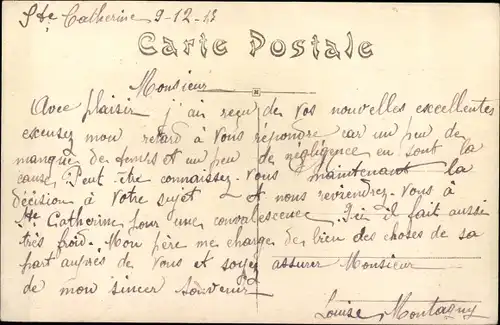 Ste Catherine 9-12-13
Carte Postale
Monsieur
Avec plaisir j'ai reçu de vos nouvelles excellentes
excusez mon retard à vous répondre car un peu de
manque de temps et un peu de négligence en sont la
cause, Peut-être connaissez-vous maintenant la
décision à votre sujet et nous reviendrez-vous à
Ste Catherine pour une convalescence. Ici il fait aussi
très froid. Mon père me charge de bien des choses de sa
part auprès de vous et soyez assurer Monsieur
de mon sincer souvenir
Louise Montagny